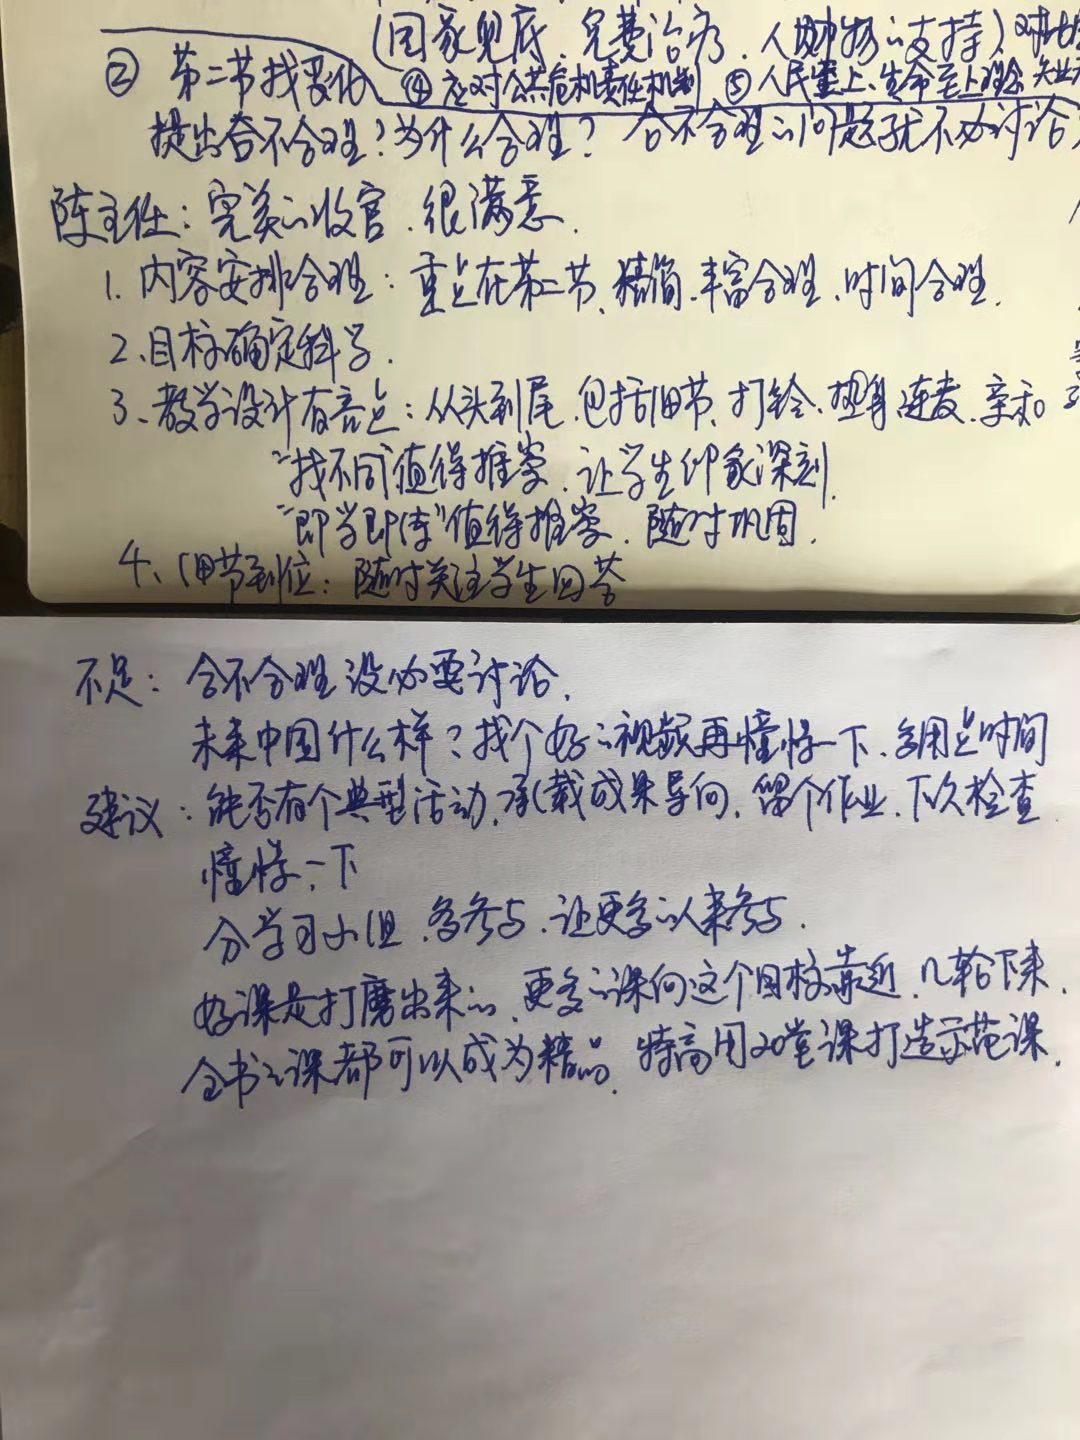 (国家兜底、免费治疗、人财物的支持)对比
② 第二节找变化 ④应对公共危机责任机制 ⑤人民至上、生命至上理念
提出合不合理?为什么合理? 合不合理的问题就不必讨论
陈主任:完美的收官、很满意.
1. 内容安排合理:重点在第二节、精简、丰富合理、时间合理.
2、目标确定科学.
3、教学设计有亮点:从头到尾、包括细节、打铃、热身、连麦、亲和
"找不同"值得推崇、让学生印象深刻.
"即学即练"值得推崇、随时巩固.
4、细节到位:随时关注学生回答
不足:合不合理没必要讨论.
未来中国什么样?找个好的视频再憧憬一下、多用点时间
建议:能否有个典型活动、承载成果导向、留个作业、下次检查
憧憬一下
分学习小组、多参与、让更多的人来参与.
好课是打磨出来的、更多的课向这个目标靠近、几轮下来、
全书之课都可以成为精品、特高用20堂课打造示范课.